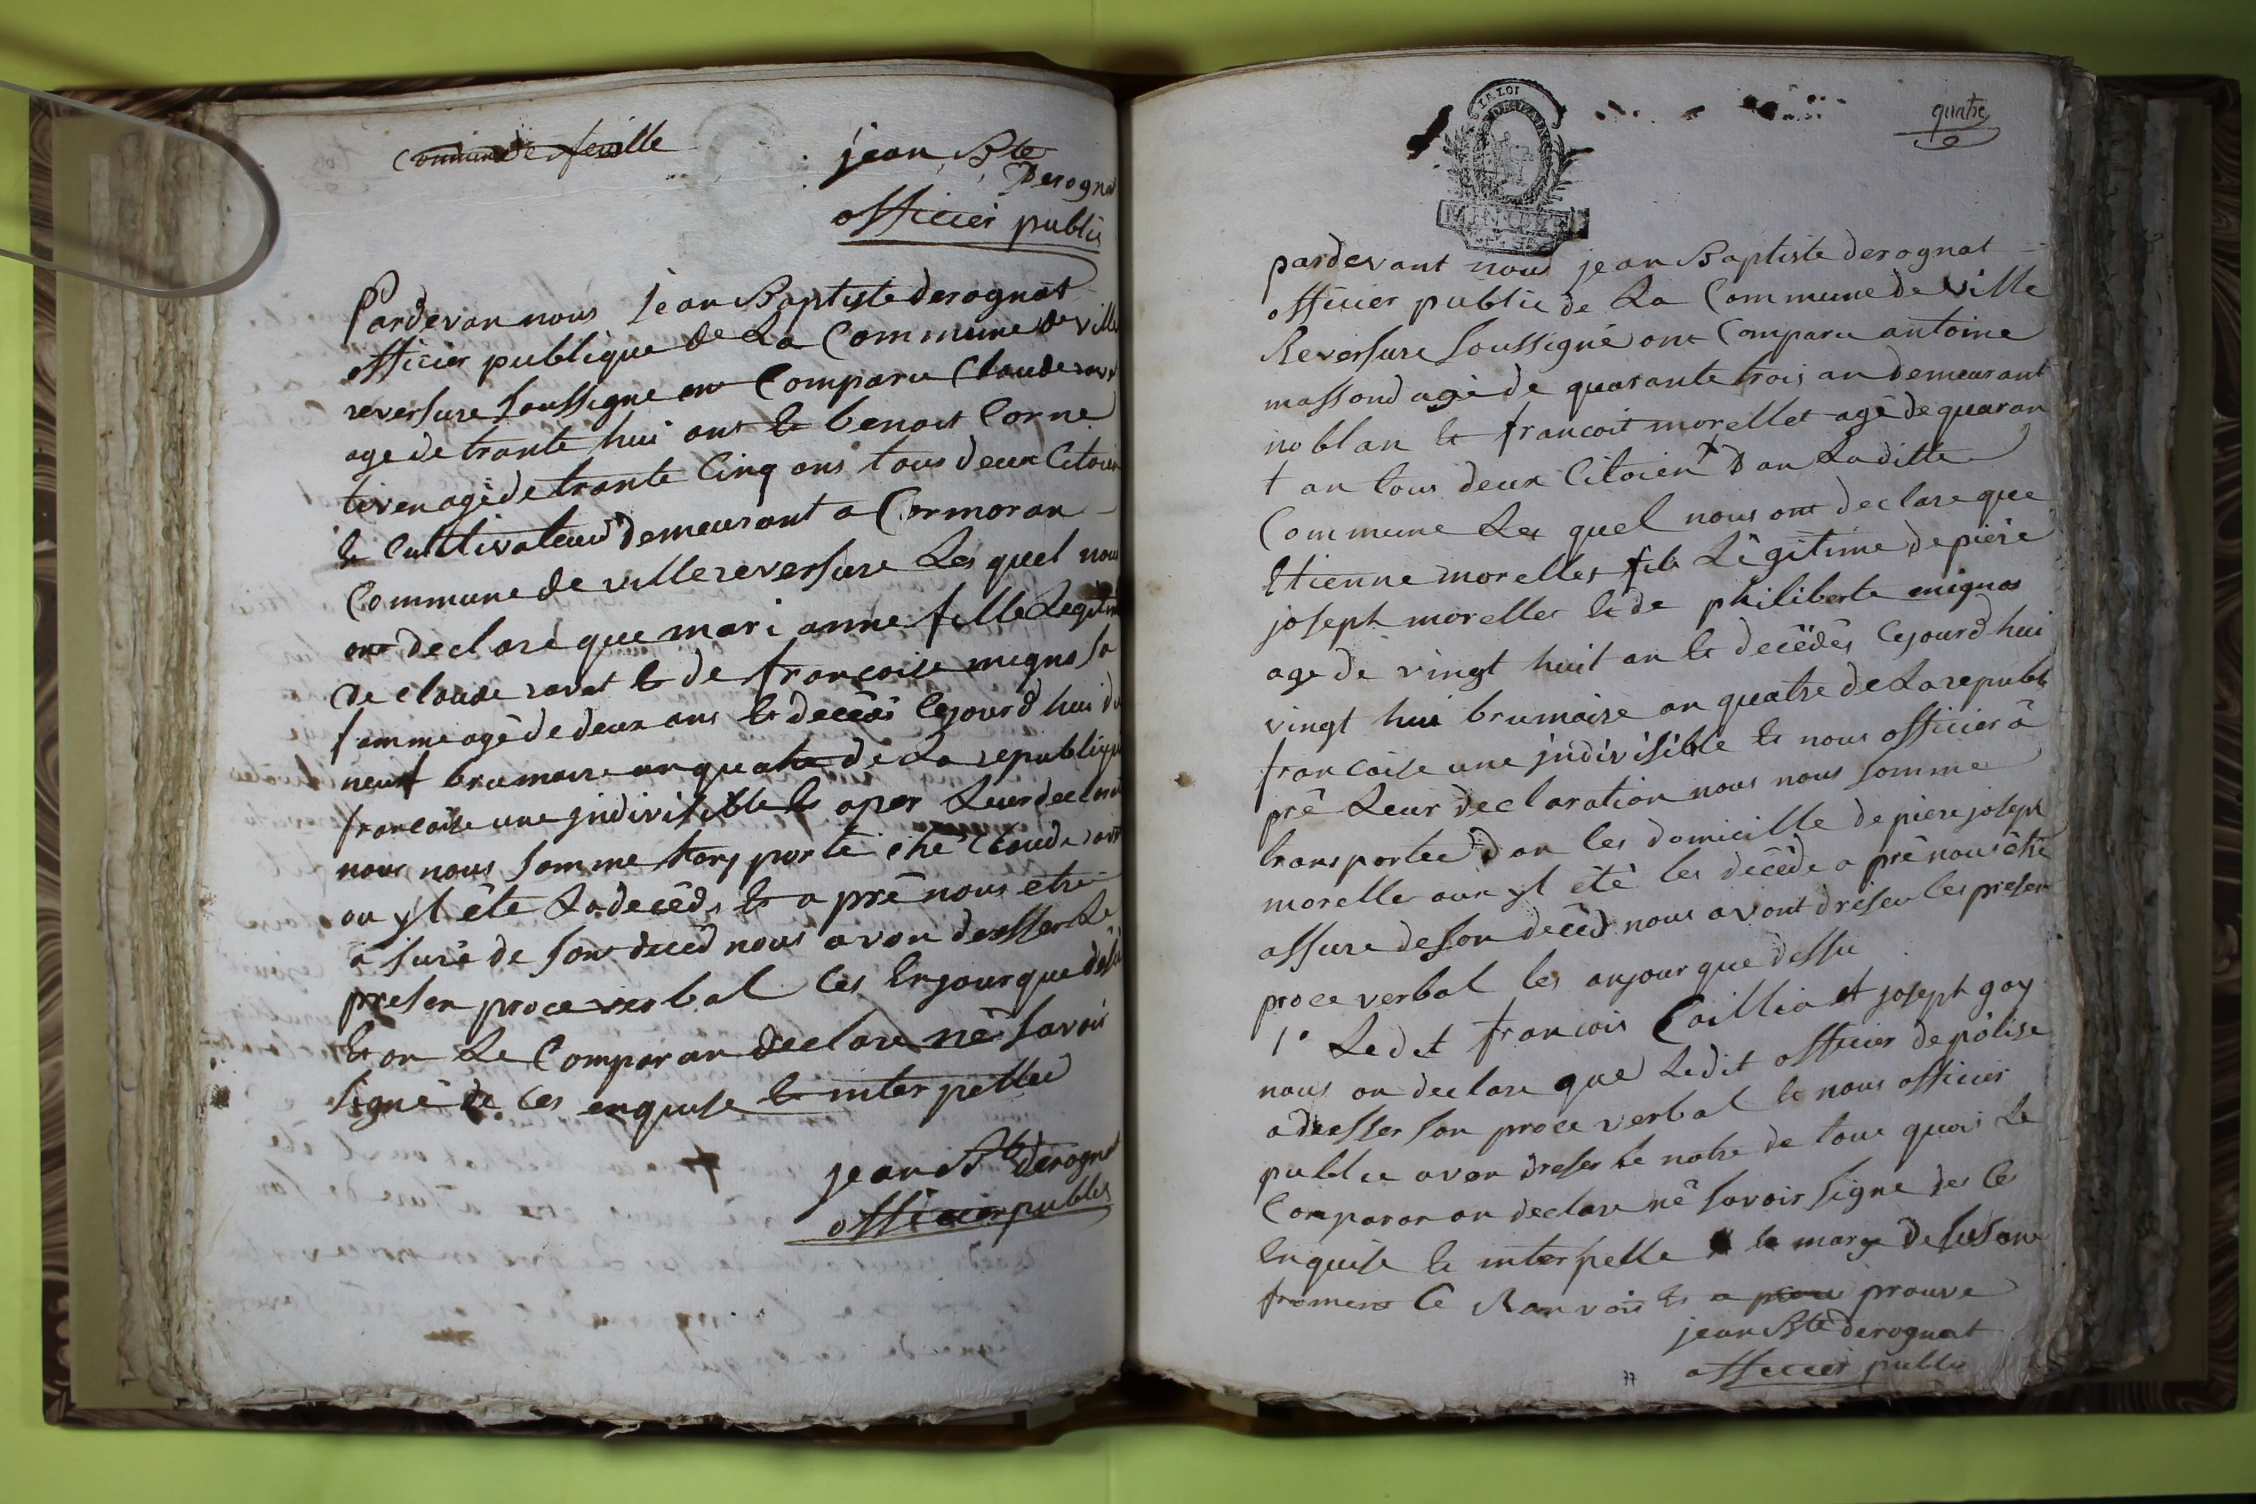 Commune de feuille
jean Bte
Derognat
officier public
Pardevan nous Jean Baptiste derognat
officier publique de La Commune de ville
reversure soussigne ont Comparu Claude ravat
age de trante hui ans et benoit Corne
tiven agé de trante Cinq ans tous deux Citoien
et Cultivateur demeurant a Cormoran
Commune de villereversure Les quel nous
ont declaré que mari anne fille Legitim
de claude ravat et de francoise migno sa
famme agé de deux ans et decéds Cejourd hui
neuf brumaire an quatre de La republique
francaise une jndivisible et aper Leur declar
nous nous somme transporté ché Claude ravat
ou yl éte La decéde et a pré nous etre
a suré de son decéd nous avon dresser Le
presen proce verbal Les Enjour que desu
Et on Le Comparan declare né savoir
signé de Ces enquise et interpellee
jean Bte derognat
officier public
quatre
LA LOI
pardevant nous jean Baptiste derognat
officier public de La Commune de ville
Reversure soussigné ont Comparu antoine
massond agé de quarante trois an demeurant
noblan et francoit morellet agé de quaran
t an tous deux Citoien Dan Laditte
Commune Les quel nous ont declare que
Etienne morelles fils Légitime de piére
joseph morelles et de philiberte mignos
age de vingt huit an et decédés Cejourd hui
vingt hui brumaire an quatre de La republi
francaise une jndivisible et nous officier á
pré Leur declaration nous nous somme
transportee dan les domicille de piere joseph
morelle aux yl été les décéde a pré nous étre
assure de son décéd nous avont dreser les presen
proce verbal les anjour que dessu
1° Ledit francois Caillia et joseph gay
nous on declare que Ledit officier de polise
a dresser son proce verbal et nous officier
public avon dreser le notre de tous quois Le
Comparan on declare né savoir signe de Ces
Enquise et interpelle la marge de
froment Ce Ranvois et a prouve
jean Bte derognat
officier public
77